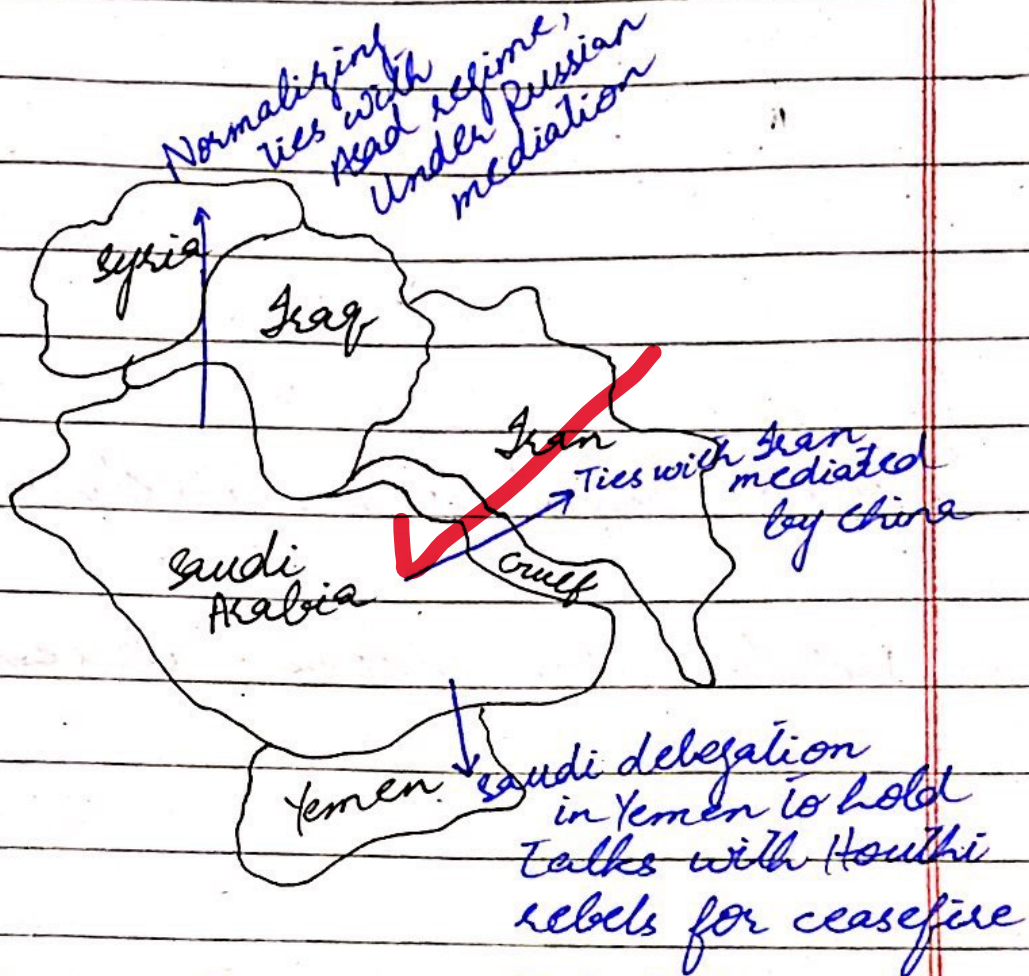 Normalizing
ties with
Asad regime,
Under Russian
mediation
Syria
Iraq
Iran
Ties with Iran
mediated
by China
Saudi
Arabia
Gulf
Yemen
Saudi delegation
in Yemen to hold
Talks with Houthi
rebels for ceasefire